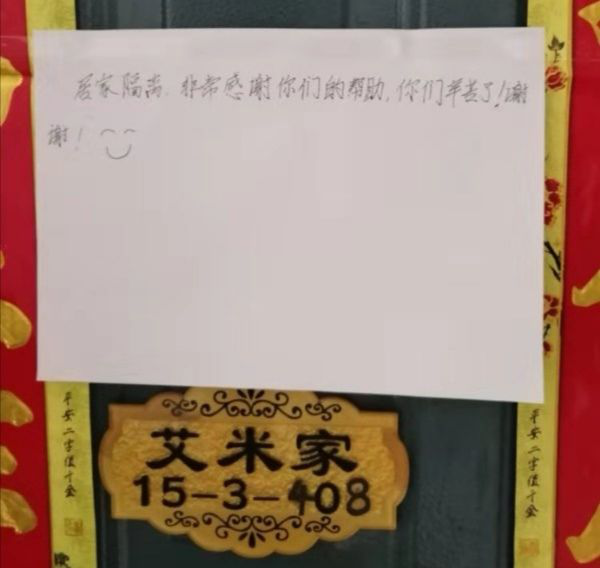 居家隔离,非常感谢你们的帮助,你们辛苦了!谢
谢!
艾米家
15-3-408
平安二字值千金
平安二字值千金